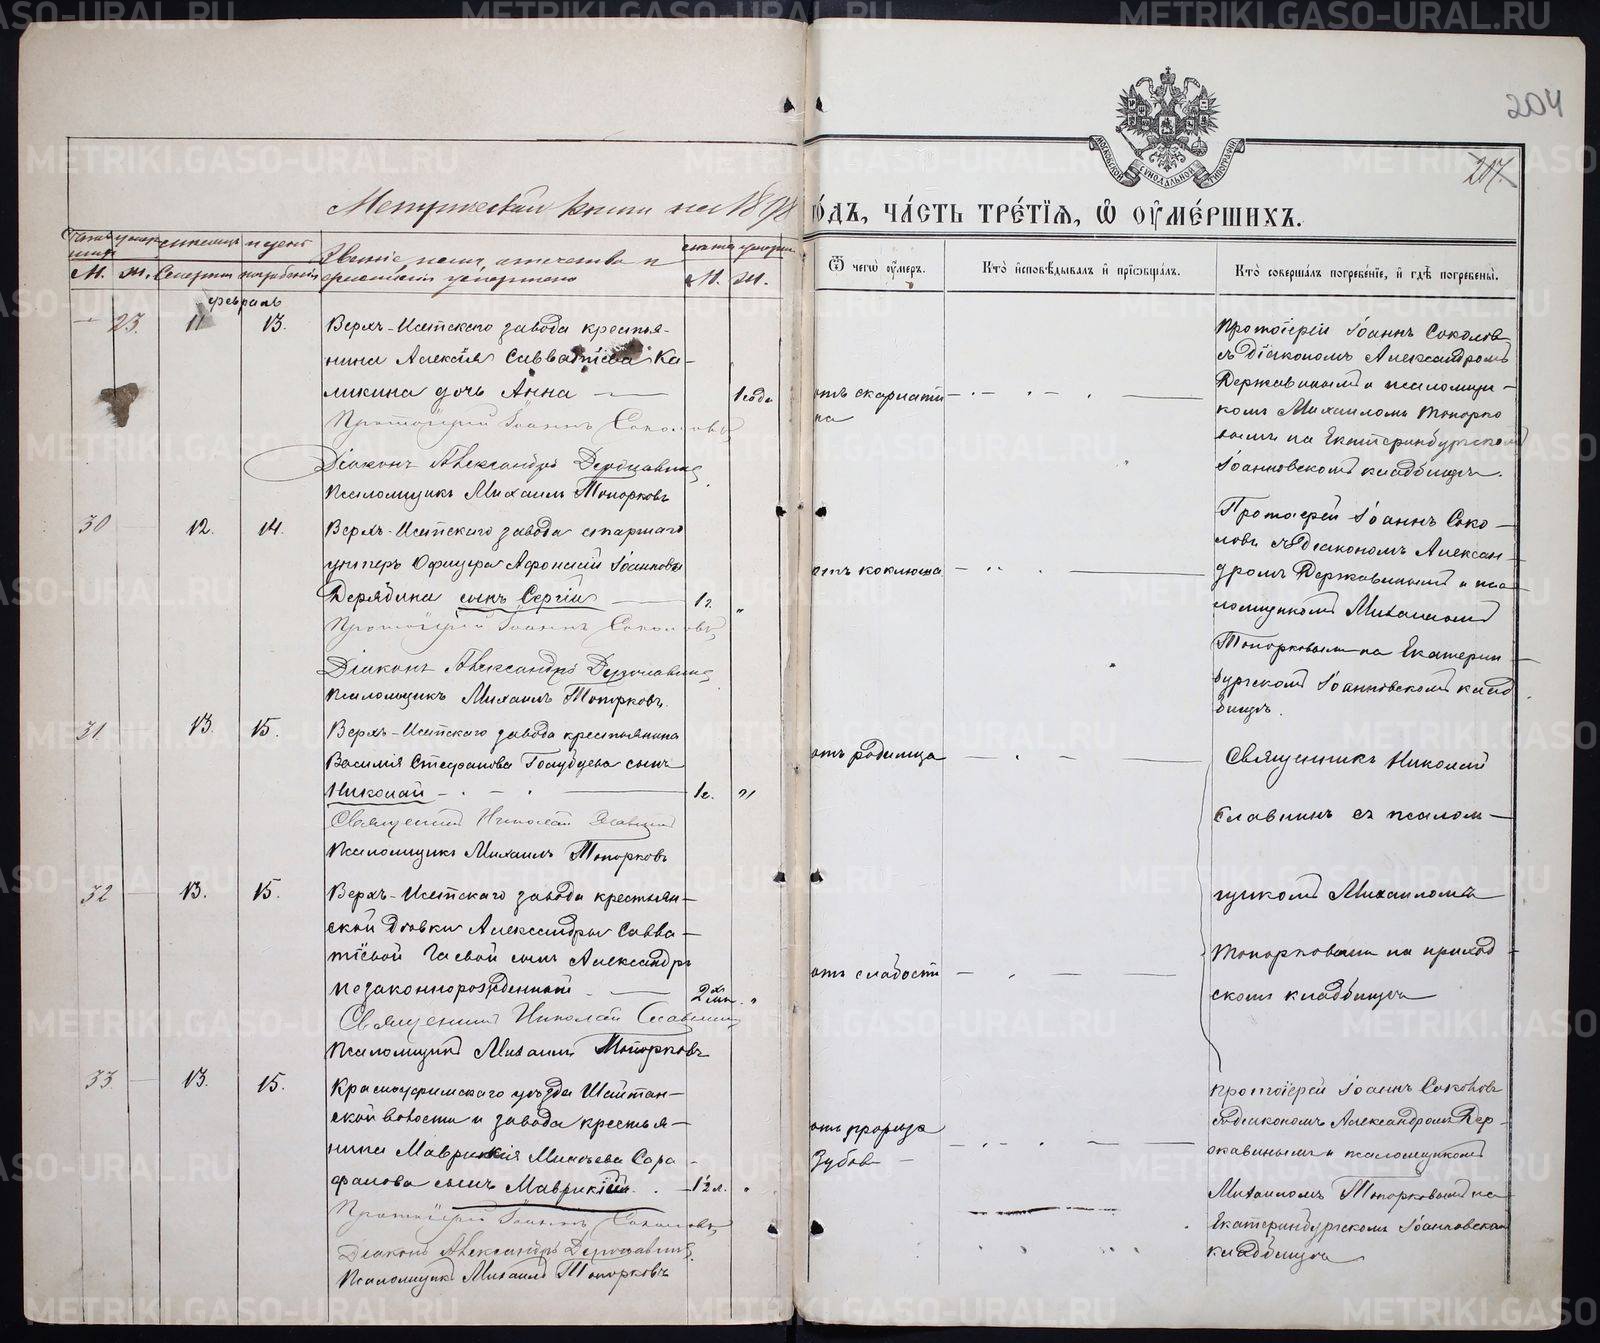 204
217.
МОСКОВСКОЙ СѴНОДАЛЬНОЙ ТИПОГРАФІИ
Метрическая книга на 1898
го́дъ, ча́сть тре́тїѧ, ѡ҆ ᲂу҆ме́ршихъ.
Мѣсяцъ и день
Званіе, имя, отчество и
фамилія умершаго
М. Ж. Смерти погребенія
М. Ж.
Ѿ чегѡ̀ ᲂу҆́меръ.
Кто̀ и҆сповѣ́дывалъ и҆ прїѡбща́лъ.
Кто̀ соверша́лъ погребе́нїе, и҆ гдѣ̀ погребены̀.
Февраль
— 23. 11 13.
Верхъ-Исетскаго завода крестья-
нина Алексія Савватіева Ка-
ликина дочь Анна —
1 года
Протоіерей Іоаннъ Соколовъ
Діаконъ Александръ Державинъ
Псаломщикъ Михаилъ Топорковъ
отъ скарлати-
на
Протоіерей Іоаннъ Соколовъ
съ Діакономъ Александромъ
Державинымъ и псаломщи-
комъ Михаиломъ Топорко
вымъ на Екатеринбургскомъ
Іоанновскомъ кладбищѣ.
30 — 12. 14.
Верхъ-Исетскаго завода старшаго
унтеръ Офицера Афонасій Іоаннова
Дерябина сынъ Сергій — 1 г. "
Протоіерей Іоаннъ Соколовъ
Діаконъ Александръ Державинъ
Псаломщикъ Михаилъ Топорковъ.
отъ коклюша
Протоіерей Іоаннъ Соко-
ловъ съ Діакономъ Алексан-
дромъ Державинымъ и пса-
ломщикомъ Михаиломъ
Топорковымъ на Екатерин-
бургскомъ Іоанновскомъ клад
бищѣ.
31 13. 15.
Верхъ-Исетскаго завода крестьянина
Василія Стефанова Голубцева сынъ
Николай — 1 г. "
Священникъ Николай Славнинъ
Псаломщикъ Михаилъ Топорковъ
отъ родимца
Священникъ Николай
Славнинъ съ псалом-
32 — 13. 15.
Верхъ-Исетскаго завода крестьян-
ской дѣвки Александры Савва-
тіевой Гаевой сынъ Александръ
незаконнорожденный — 2 х мн. "
Священникъ Николай Славнинъ
Псаломщикъ Михаилъ Топорковъ
отъ слабости
щикомъ Михаиломъ
Топорковымъ на приход-
скомъ кладбищѣ
33 — 13. 15.
Красноуфимскаго уѣзда Шайтан-
ской волости и завода крестья-
нина Маврикія Минѣева Сара-
фанова сынъ Маврикій. 1½ л. "
Протоіерей Іоаннъ Соколовъ
Діаконъ Александръ Державинъ
Псаломщикъ Михаилъ Топорковъ
отъ прорѣза
зубовъ —
Протоіерей Іоаннъ Соколовъ
съ Діакономъ Александромъ Дер-
жавинымъ и псаломщикомъ
Михаиломъ Топорковымъ на
Екатеринбургскомъ Іоанновском
кладбищѣ
METRIKI.GASO-URAL.RU